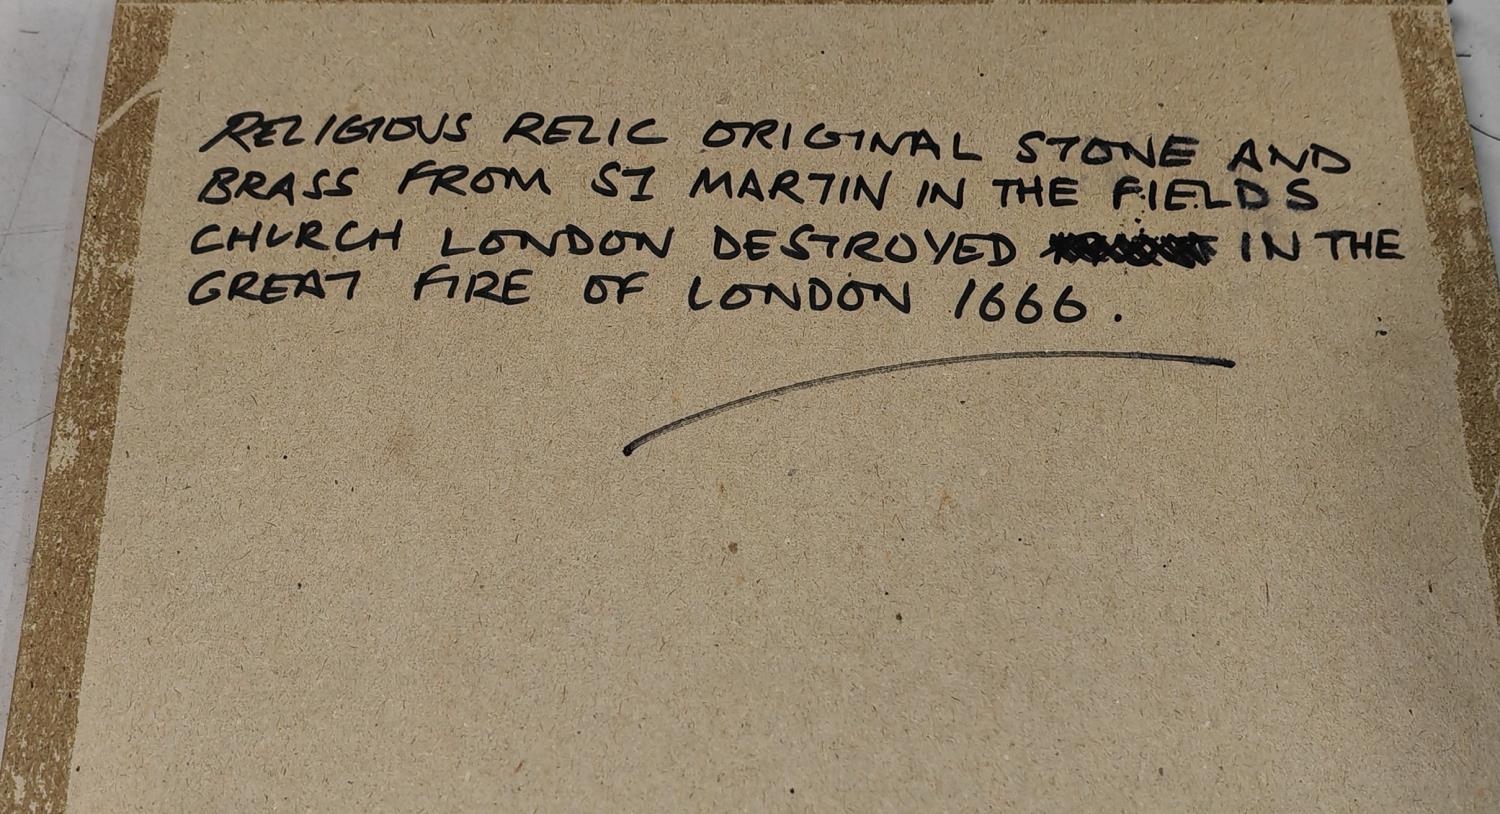 RELIGIOUS RELIC ORIGINAL STONE AND
BRASS FROM ST MARTIN IN THE FIELDS
CHURCH LONDON DESTROYED IN THE
GREAT FIRE OF LONDON 1666.